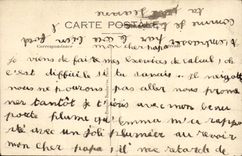 CARTE POSTALE
Correspondance
mon cher papa
je viens de faire mes exercices de calcul, oh
c'est difficile si tu savais. il neige
nous ne pouvons pas aller nous pro
mener tantôt je t'écris avec mon beau
porte plume qu'Emma m'a rappor
té avec un joli plumier au revoir
mon cher papa, il me retarde de